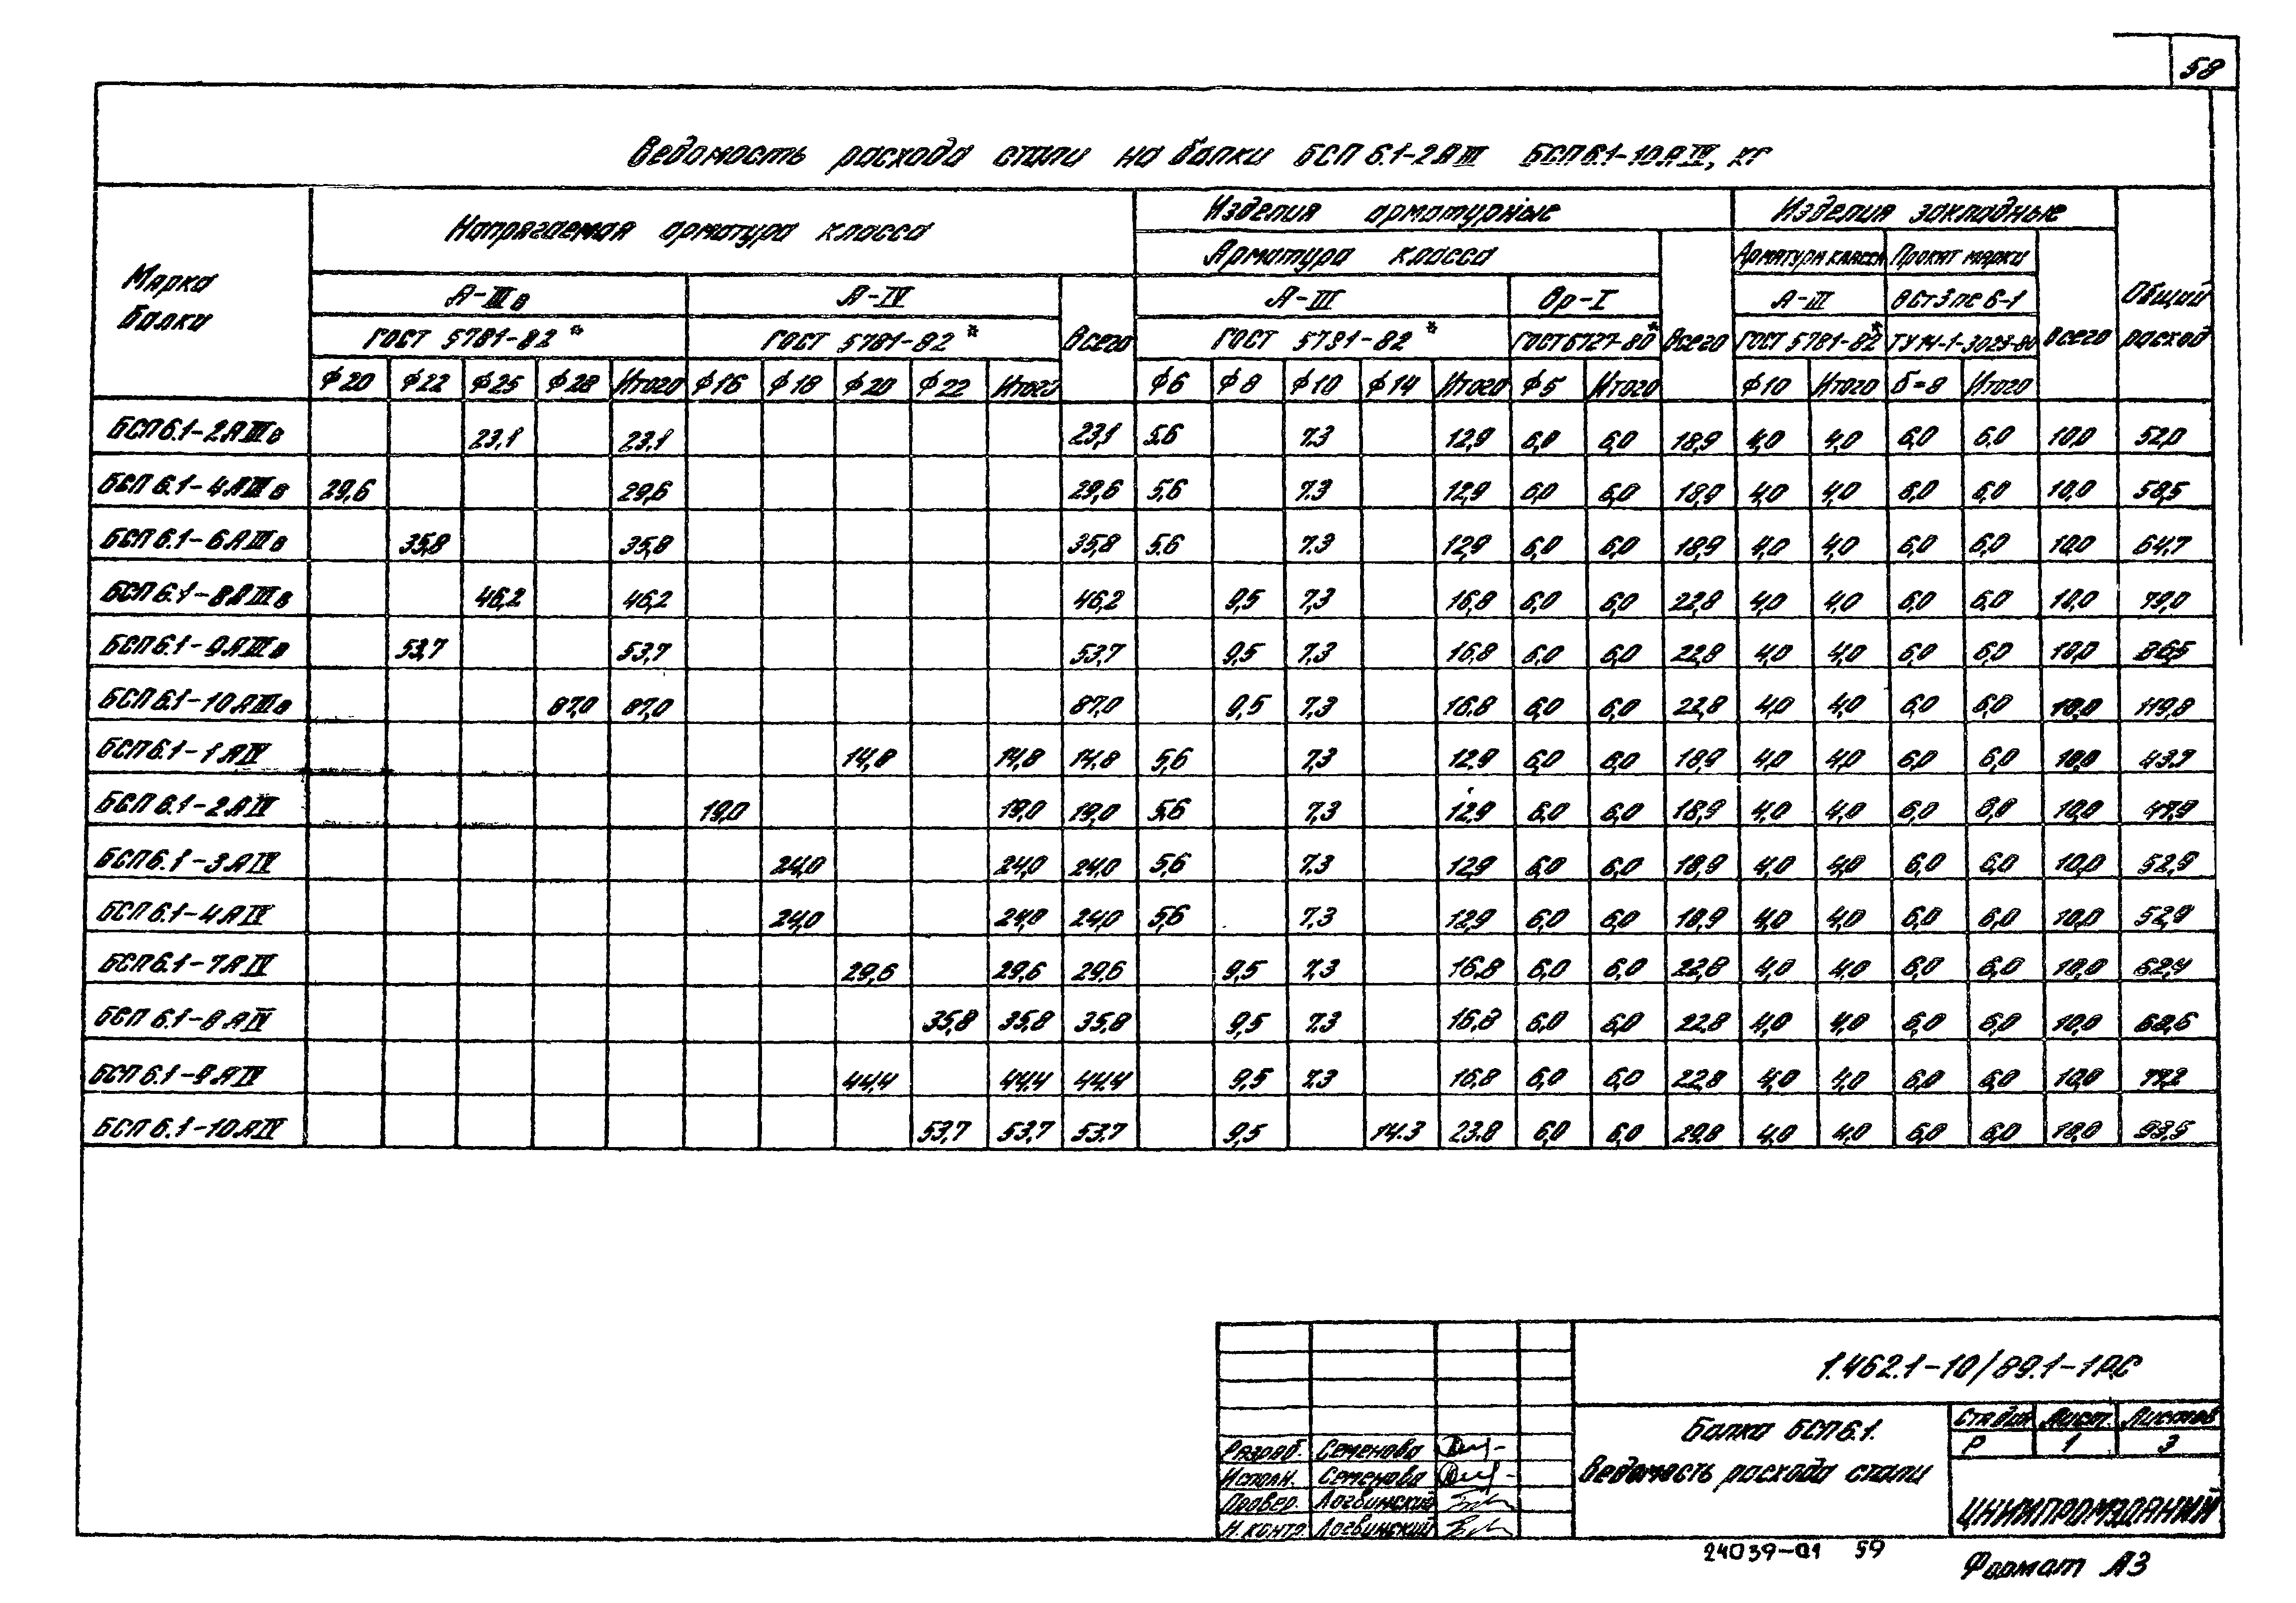 58
Ведомость расхода стали на балки БСП 6.1-2АIII БСП 6.1-10АIV, кг
Марка балки
Напрягаемая арматура класса
Изделия арматурные
Изделия закладные
Общий расход
Арматура класса
Всего
Арматура класса Прокат марки
Всего
А-IIIв А-IV Всего А-III Вр-I А-III ВСт3пс6-1
ГОСТ 5781-82* ГОСТ 5781-82* ГОСТ 5781-82* ГОСТ 6727-80* ГОСТ 5781-82* ТУ14-1-3023-80
ф20 ф22 ф25 ф28 Итого ф16 ф18 ф20 ф22 Итого ф6 ф8 ф10 ф14 Итого ф5 Итого ф10 Итого δ=8 Итого
БСП6.1-2АIIIв 23,1 23,1 23,1 5,6 7,3 12,9 6,0 6,0 18,9 4,0 4,0 6,0 6,0 10,0 52,0
БСП 6.1-4АIIIв 29,6 29,6 29,6 5,6 7,3 12,9 6,0 6,0 18,9 4,0 4,0 6,0 6,0 10,0 58,5
БСП 6.1-6АIIIв 35,8 35,8 35,8 5,6 7,3 12,9 6,0 6,0 18,9 4,0 4,0 6,0 6,0 10,0 64,7
БСП 6.1-8АIIIв 46,2 46,2 46,2 9,5 7,3 16,8 6,0 6,0 22,8 4,0 4,0 6,0 6,0 10,0 79,0
БСП6.1-9АIIIв 53,7 53,7 53,7 9,5 7,3 16,8 6,0 6,0 22,8 4,0 4,0 6,0 6,0 10,0 86,5
БСП6.1-10АIIIв 87,0 87,0 87,0 9,5 7,3 16,8 6,0 6,0 22,8 4,0 4,0 6,0 6,0 10,0 119,8
БСП6.1-1АIV 14,8 14,8 14,8 5,6 7,3 12,9 6,0 6,0 18,9 4,0 4,0 6,0 6,0 10,0 43,7
БСП 6.1-2АIV 19,0 19,0 19,0 5,6 7,3 12,9 6,0 6,0 18,9 4,0 4,0 6,0 6,0 10,0 47,9
БСП6.1-3АIV 24,0 24,0 24,0 5,6 7,3 12,9 6,0 6,0 18,9 4,0 4,0 6,0 6,0 10,0 52,9
БСП 6.1-4АIV 24,0 24,0 24,0 5,6 7,3 12,9 6,0 6,0 18,9 4,0 4,0 6,0 6,0 10,0 52,9
БСП6.1-7АIV 29,6 29,6 29,6 9,5 7,3 16,8 6,0 6,0 22,8 4,0 4,0 6,0 6,0 10,0 62,4
БСП 6.1-8АIV 35,8 35,8 35,8 9,5 7,3 16,8 6,0 6,0 22,8 4,0 4,0 6,0 6,0 10,0 68,6
БСП 6.1-9АIV 44,4 44,4 44,4 9,5 7,3 16,8 6,0 6,0 22,8 4,0 4,0 6,0 6,0 10,0 77,2
БСП 6.1-10АIV 53,7 53,7 53,7 9,5 14,3 23,8 6,0 6,0 29,8 4,0 4,0 6,0 6,0 10,0 93,5
1.462.1-10/89.1-1РС
Балка БСП6.1.
Ведомость расхода стали
Стадия Лист Листов
Р 1 3
Разраб. Семенова
Исполн. Семенова
Провер. Логвинский
Н.контр. Логвинский
ЦНИИПРОМЗДАНИЙ
24039-01 59
Формат А3